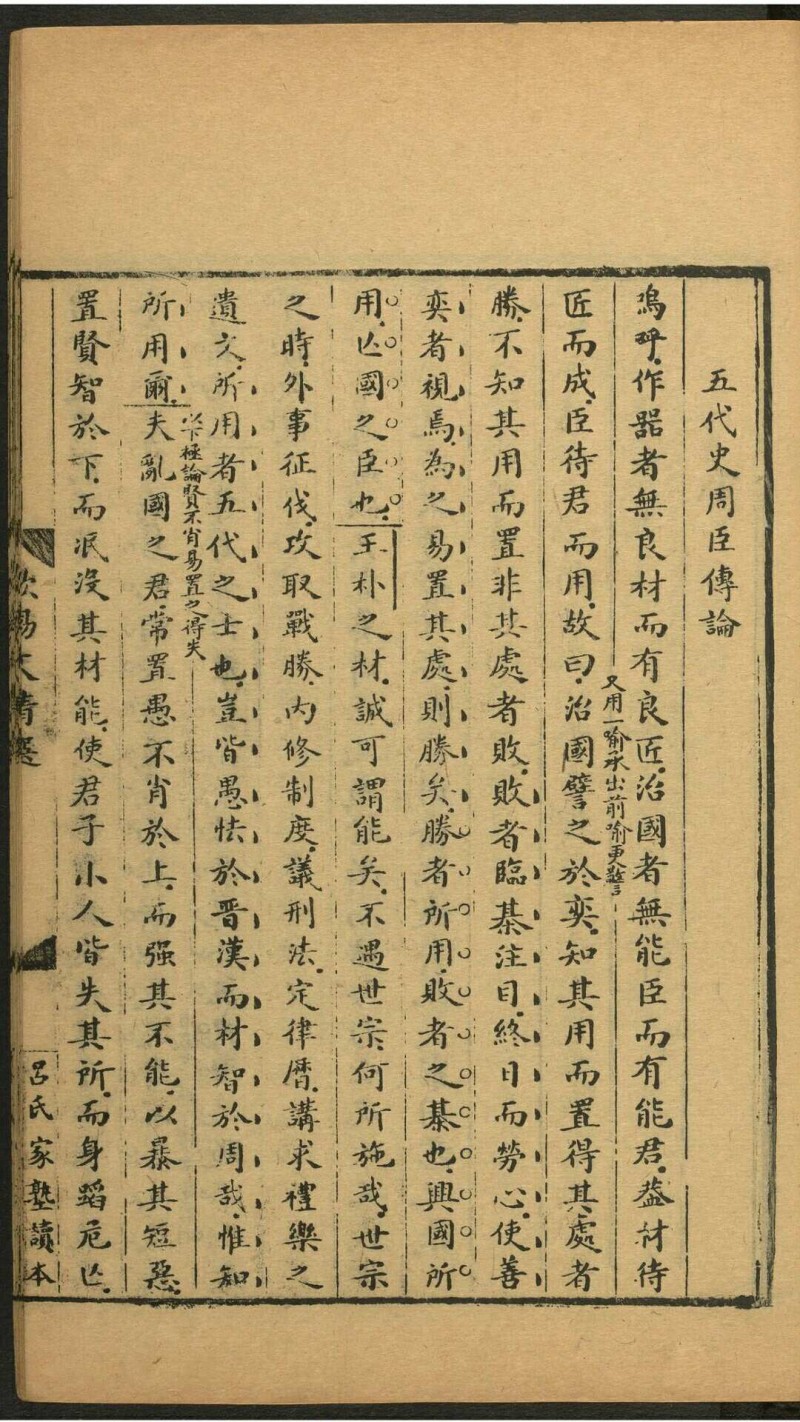 五代史周臣傳論
嗚呼作器者無良材而有良匠治國者無能臣而有能君葢材待
匠而成臣待君而用故曰治國譬之於奕知其用而置得其處者
又用一喻承出前喻更警
勝不知其用而置非其處者敗敗者臨棊注目終日而勞心使善
奕者視焉為之易置其處則勝矣勝者所用敗者之棊也興國所
用亾國之臣也王朴之材誠可謂能矣不遇世宗何所施哉世宗
之時外事征伐攻取戰勝內修制度議刑法定律曆講求禮樂之
遺文所用者五代之士也豈皆愚怯於晋漢而材智於周哉惟知
所用爾夫亂國之君常置愚不肖於上而强其不能以暴其短惡
以下極論賢不肖易置之得失
置賢智於下而泯沒其材能使君子小人皆失其所而身蹈危亾
呂氏家塾讀本